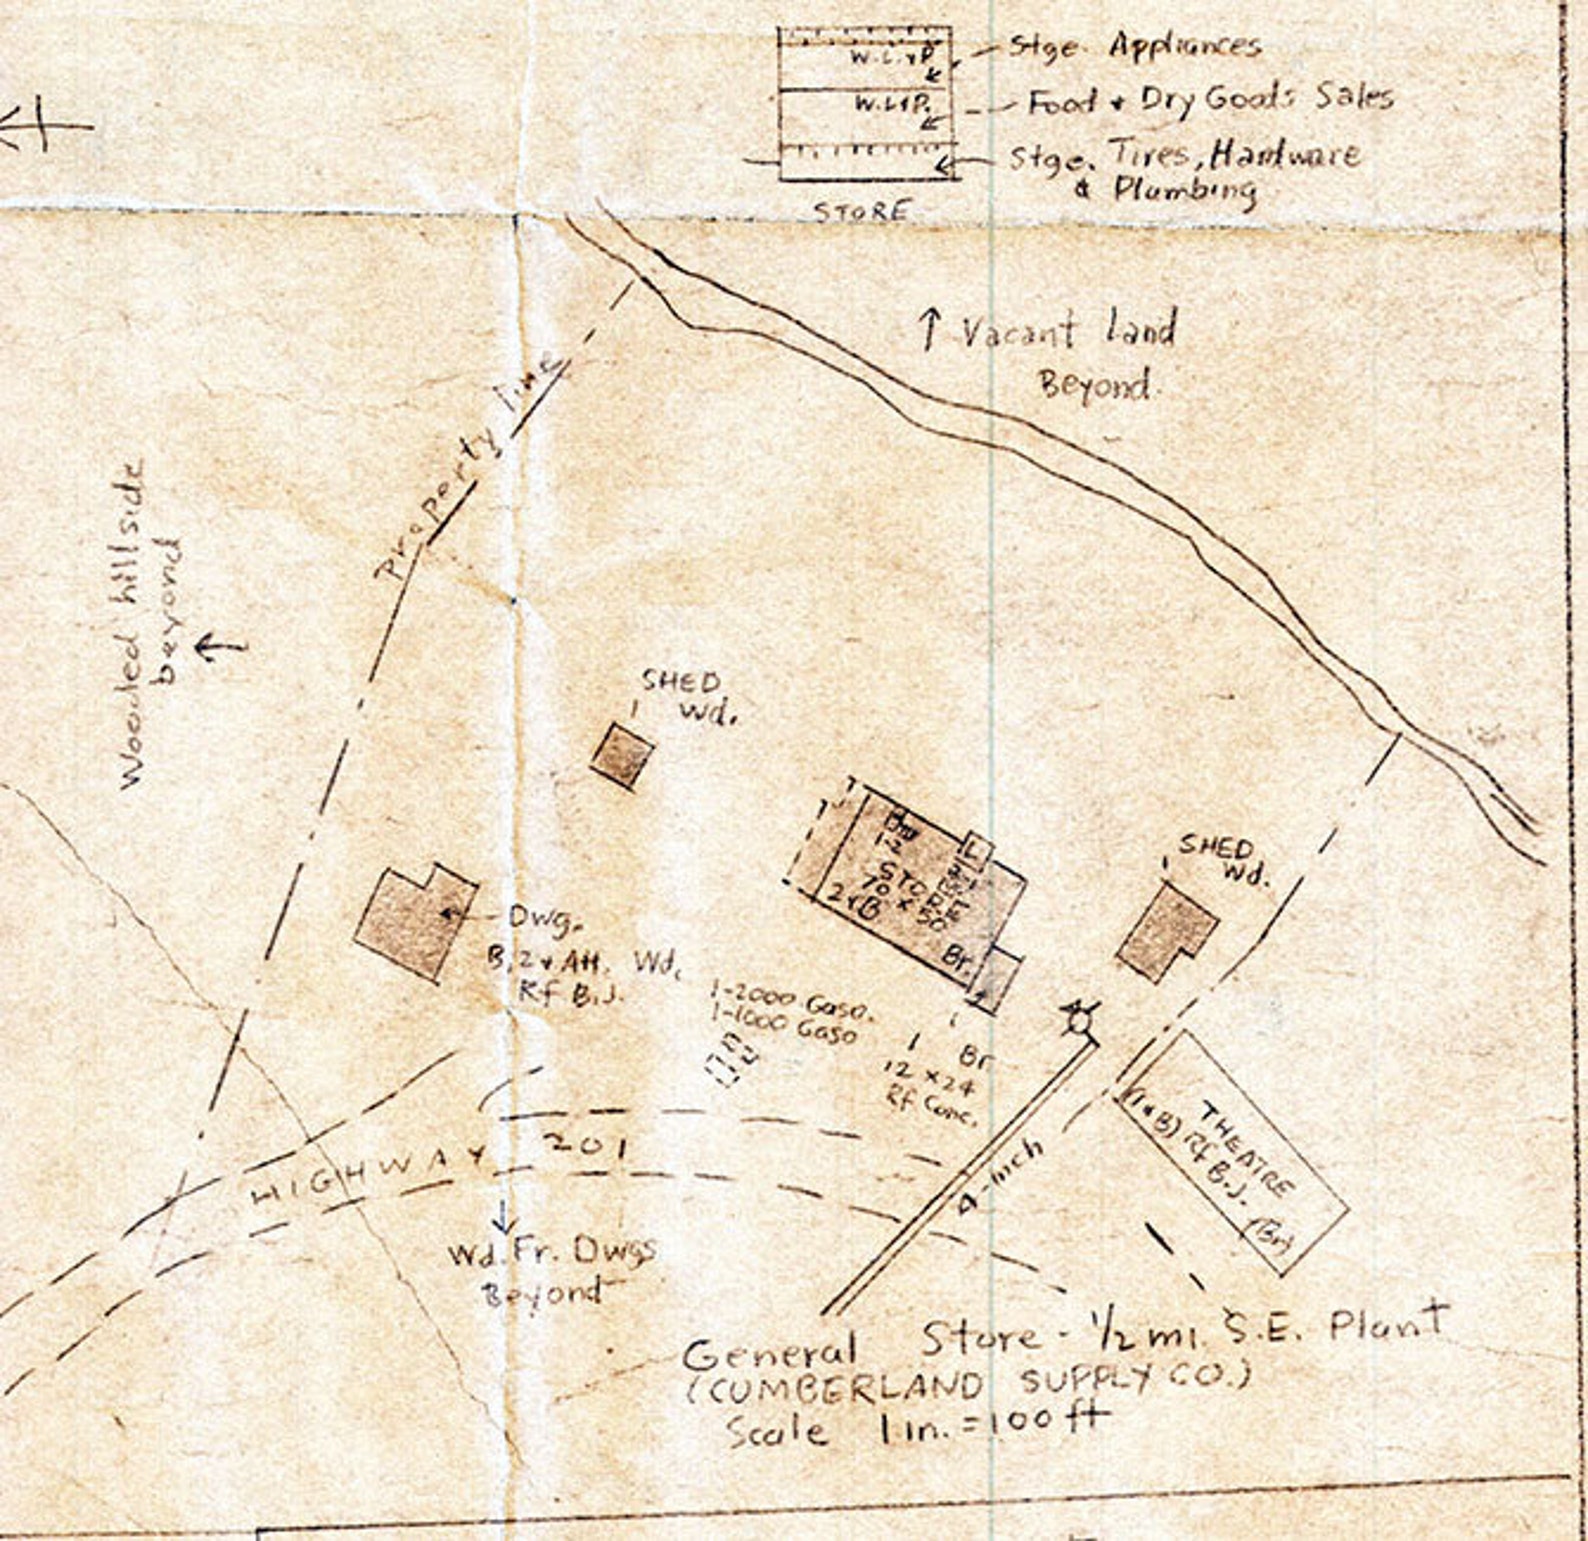 W.L.&P.
Stge. Appliances
W.L&P.
Food & Dry Goods Sales
Stge. Tires, Hardware
& Plumbing
STORE
↑ Vacant land
Beyond.
Property line
Wooded hillside
beyond
SHED
Wd.
1-2
STORE
70 x 50
2 & B
L
Br.
SHED
Wd.
Dwg.
B, 2 & Att. Wd.
Rf B.J.
1-2000 Gaso.
1-1000 Gaso
1 Br
12 x 24
Rf Conc.
4-inch
THEATRE
(1&B) Rf B.J. (Br)
HIGHWAY 201
Wd. Fr. Dwgs
Beyond
General Store - 1/2 mi. S.E. Plant
(CUMBERLAND SUPPLY CO.)
Scale 1 in. = 100 ft